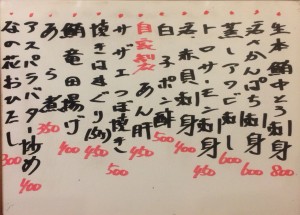 生本鮪中とろ刺身 800
活〆かんぱち刺身 600
蒸しアワビ刺し 600
トロサーモン刺身 450
活赤貝刺身 400
白子ポン酢 500
自家製あん肝 450
サザエつぼ焼き 500
焼きはまぐり 450
鮪竜田揚げ 400
あら煮 350
アスパラバター炒め 400
なの花おひたし 300